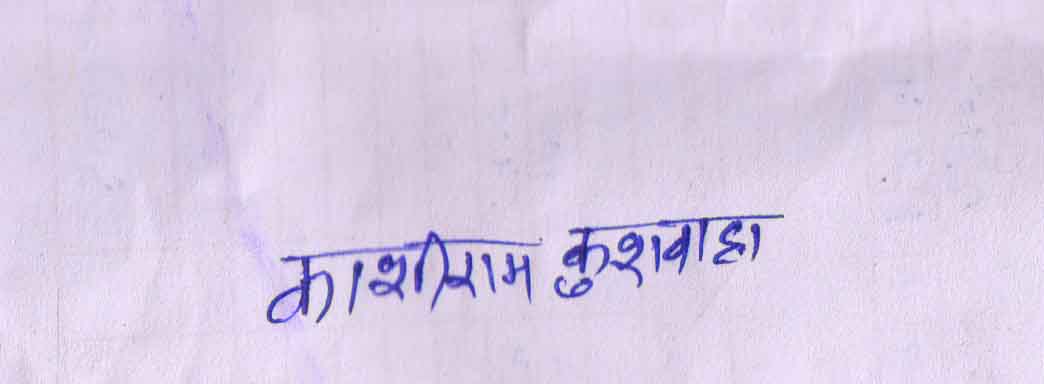 काशीराम कुशवाहा